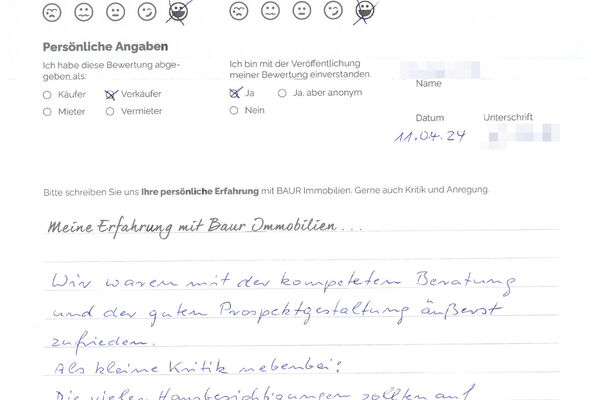 Persönliche Angaben
Ich habe diese Bewertung abge-
geben als:
Käufer
Verkäufer
Mieter
Vermieter
Ich bin mit der Veröffentlichung
meiner Bewertung einverstanden.
Ja
Ja, aber anonym
Nein
Name
Datum
Unterschrift
11.04.24
Bitte schreiben Sie uns Ihre persönliche Erfahrung mit BAUR Immobilien. Gerne auch Kritik und Anregung.
Meine Erfahrung mit Baur Immobilien...
Wir waren mit der kompeteten Beratung
und der guten Prospektgestaltung äußerst
zufrieden.
Als kleine Kritik nebenbei:
Die vielen Hausbesichtigungen sollten auf